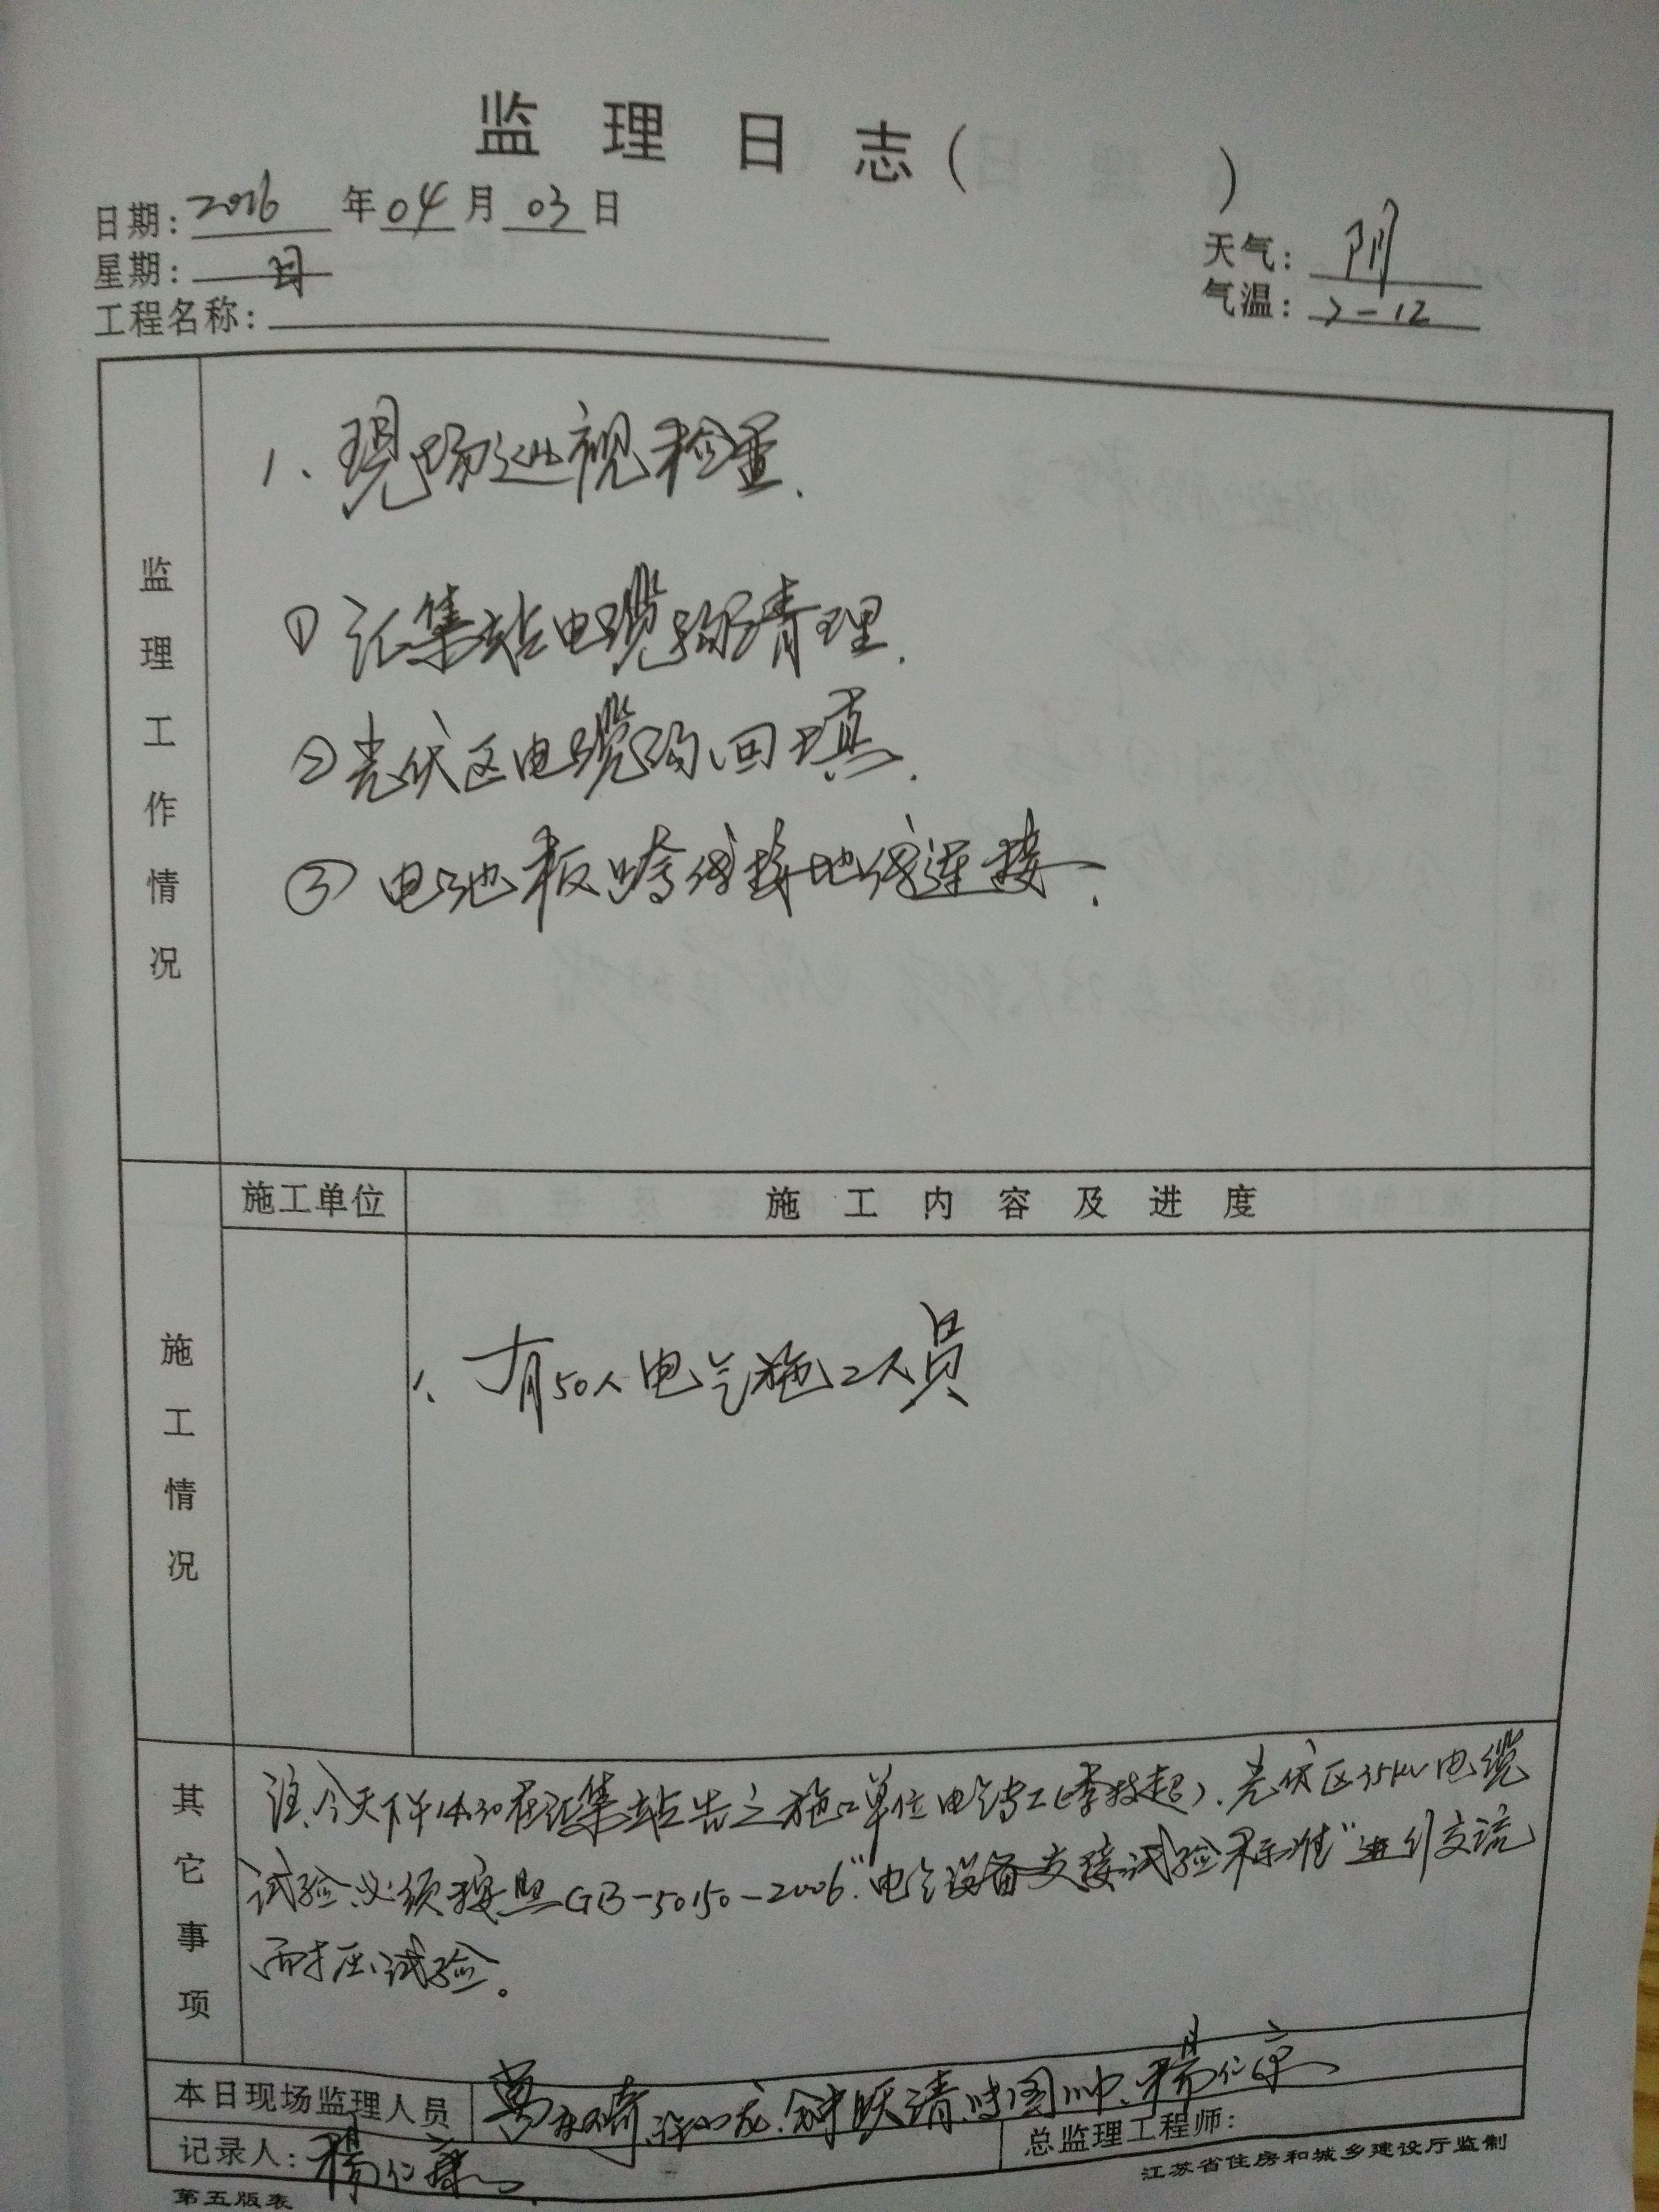 监理日志( )
日期: 2016 年 04 月 03 日
天气: 阴
星期: 日
气温: 7-12
工程名称:
监理工作情况
1、现场巡视检查.
① 汇集站电缆沟清理.
② 光伏区电缆沟回填.
③ 电池板跨线接地线连接.
施工单位
施工内容及进度
施工情况
1、有50人电气施工人员
其它事项
注、今天下午14:30在汇集站告之施工单位电气专工(李技超)、光伏区35kv电缆
试验必须按照GB-50150-2006“电气设备交接试验标准”进行交流
耐压试验。
本日现场监理人员
钟跃清 杨仁康
记录人: 杨仁康
总监理工程师:
江苏省住房和城乡建设厅监制
第五版表